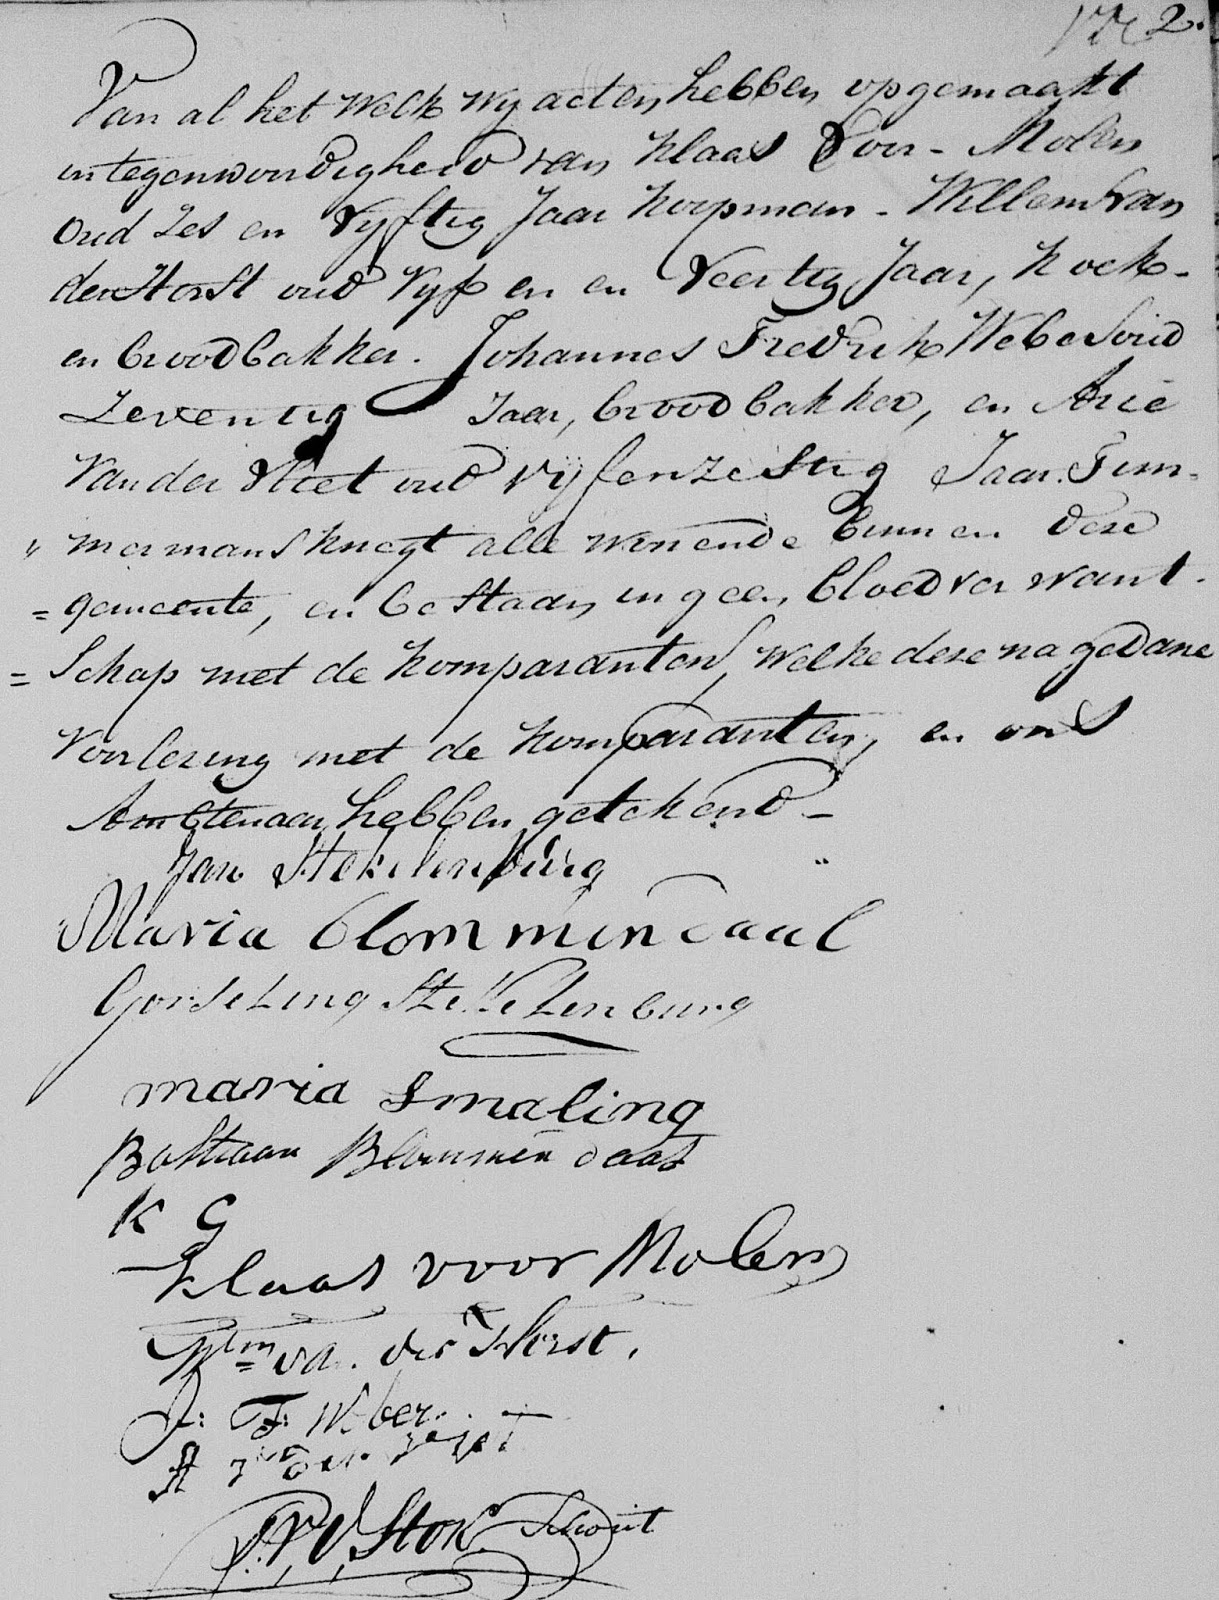 2.
Van al het Welk Wy acten hebben opgemaakt
in tegenwoordigheid van Klaas Voor - Molen
Oud Zes en Vyftig Jaar Koopman - Willem van
der Horst oud Vyf en en Veertig Jaar, Koek-
en broodbakker. Johannes Fredrik Weber oud
Zeventig Jaar, broodbakker, en Arie
Van der Vliet oud vyfenzestig Jaar. Tim-
" mermansknegt alle wonende binnen deze
= gemeente, en bestaan in geen bloedverwant-
= Schap met de Komparanten, Welke deze na gedane
Voorlezing met de Komparanten, en ons
Amtenaar hebben getekend -
Jan Stekelenburg
Maria Blommendaal
Gorseling Stekelenburg
maria Smaling
Bastiaan Blommendaal
K G
Klaas voor Molen
Wm van der Horst.
J: F: Weber.
A
Stok Schout